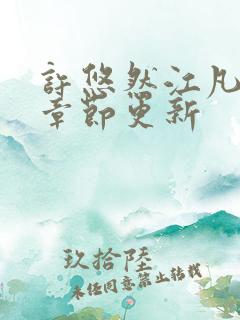 許悠然江凡
章節更新
玖拾陸
未经同意禁止转载